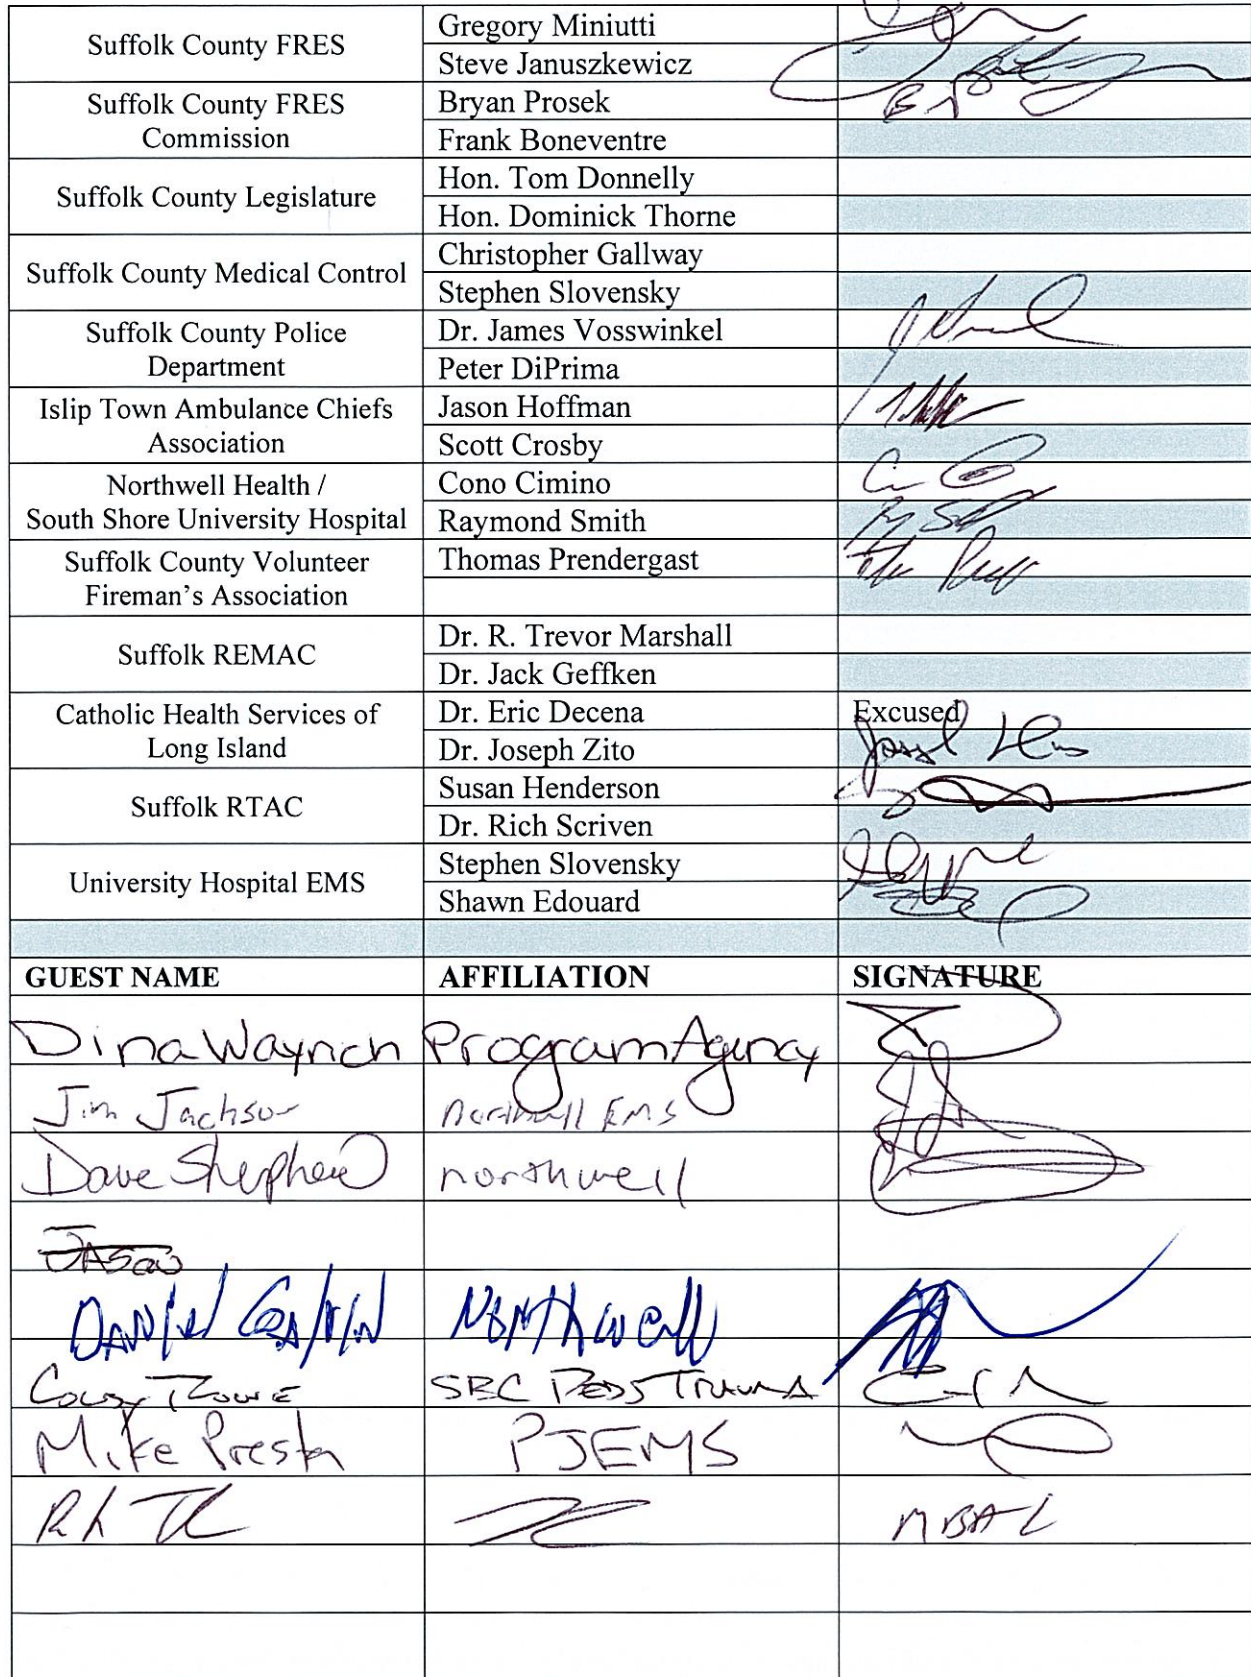 Suffolk County FRES
Gregory Miniutti
Steve Januszkewicz
Suffolk County FRES
Commission
Bryan Prosek
Frank Boneventre
Suffolk County Legislature
Hon. Tom Donnelly
Hon. Dominick Thorne
Suffolk County Medical Control
Christopher Gallway
Stephen Slovensky
Suffolk County Police
Department
Dr. James Vosswinkel
Peter DiPrima
Islip Town Ambulance Chiefs
Association
Jason Hoffman
Scott Crosby
Northwell Health /
South Shore University Hospital
Cono Cimino
Raymond Smith
Suffolk County Volunteer
Fireman's Association
Thomas Prendergast
Suffolk REMAC
Dr. R. Trevor Marshall
Dr. Jack Geffken
Catholic Health Services of
Long Island
Dr. Eric Decena Excused
Dr. Joseph Zito
Suffolk RTAC
Susan Henderson
Dr. Rich Scriven
University Hospital EMS
Stephen Slovensky
Shawn Edouard
GUEST NAME AFFILIATION SIGNATURE
Dina Waynich Program Agency
Jim Jackson Northwell EMS
Dave Shepherd northwell
JASON
DANIEL Northwell
SBC PEDS TRAUMA
Mike Preston PJEMS